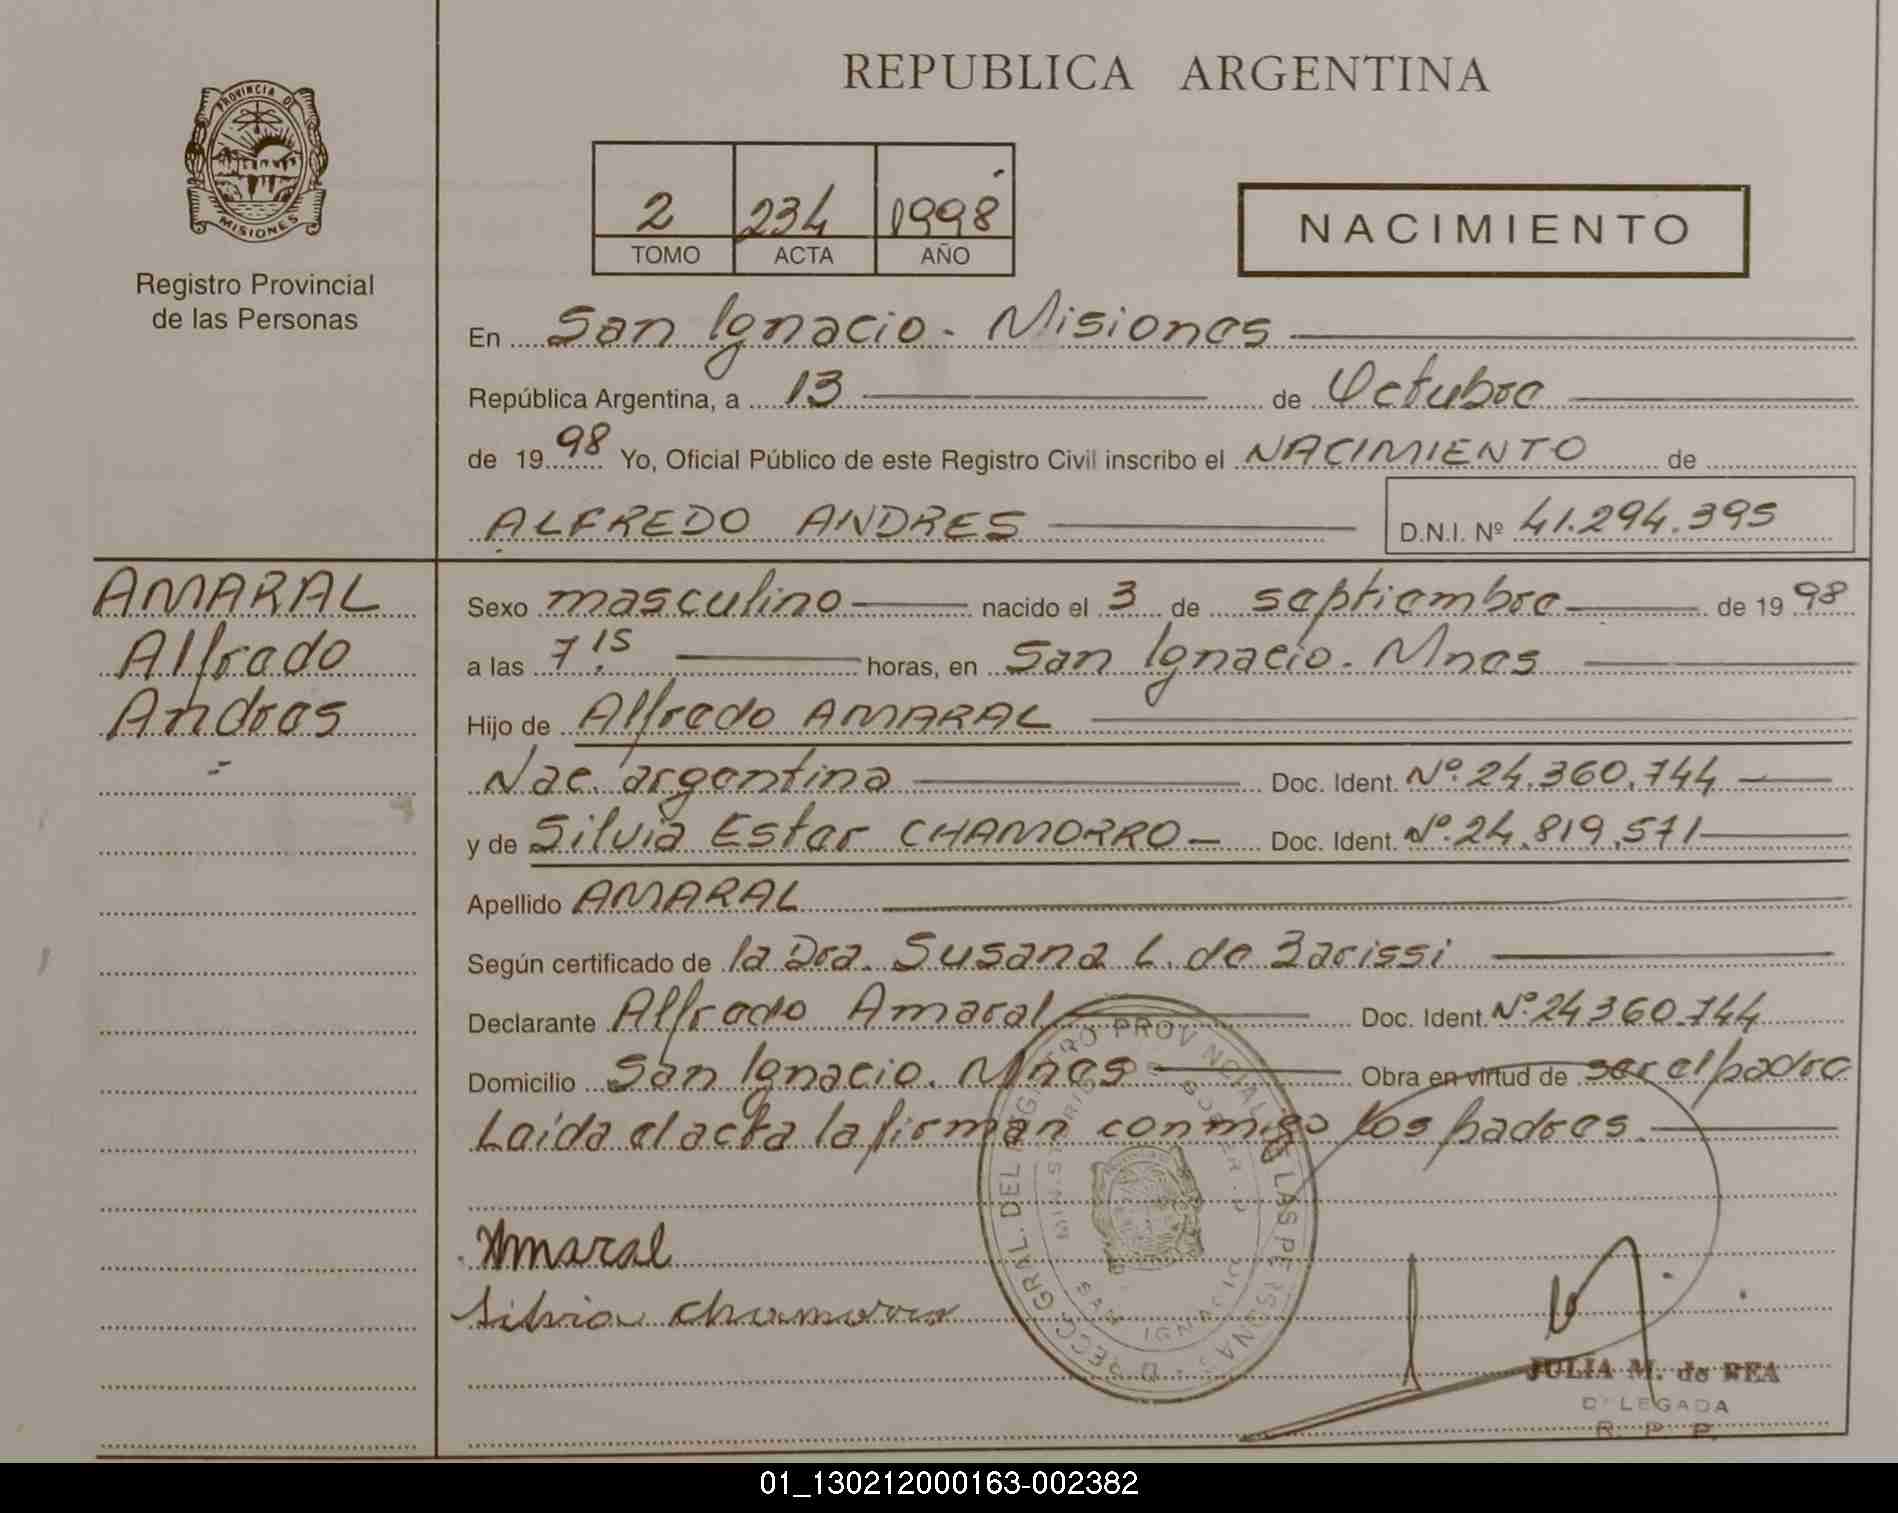 REPUBLICA ARGENTINA
PROVINCIA DE MISIONES
Registro Provincial
de las Personas
2 234 1998
TOMO ACTA AÑO
NACIMIENTO
En San Ignacio - Misiones
República Argentina, a 13 de Octubre
de 1998 Yo, Oficial Público de este Registro Civil inscribo el NACIMIENTO de
ALFREDO ANDRES D.N.I. Nº 41.294.395
AMARAL
Alfredo
Andres
Sexo masculino nacido el 3 de septiembre de 1998
a las 7,15 horas, en San Ignacio. Mnes
Hijo de Alfredo AMARAL
Nac. argentina Doc. Ident. Nº 24.360.744
y de Silvia Ester CHAMORRO Doc. Ident. Nº 24.819.571
Apellido AMARAL
Según certificado de la Dra. Susana L. de
Declarante Alfredo Amaral Doc. Ident. Nº 24360.744
Domicilio San Ignacio. Mnes Obra en virtud de ser el padre
Leída el acta la firman conmigo los padres.
Amaral
Silvia Chamorro
DIRECC. GRAL. DEL REGISTRO PROVINCIAL DE LAS PERSONAS
SAN IGNACIO
JULIA M. de REA
DELEGADA
R. P. P.
01_130212000163-002382